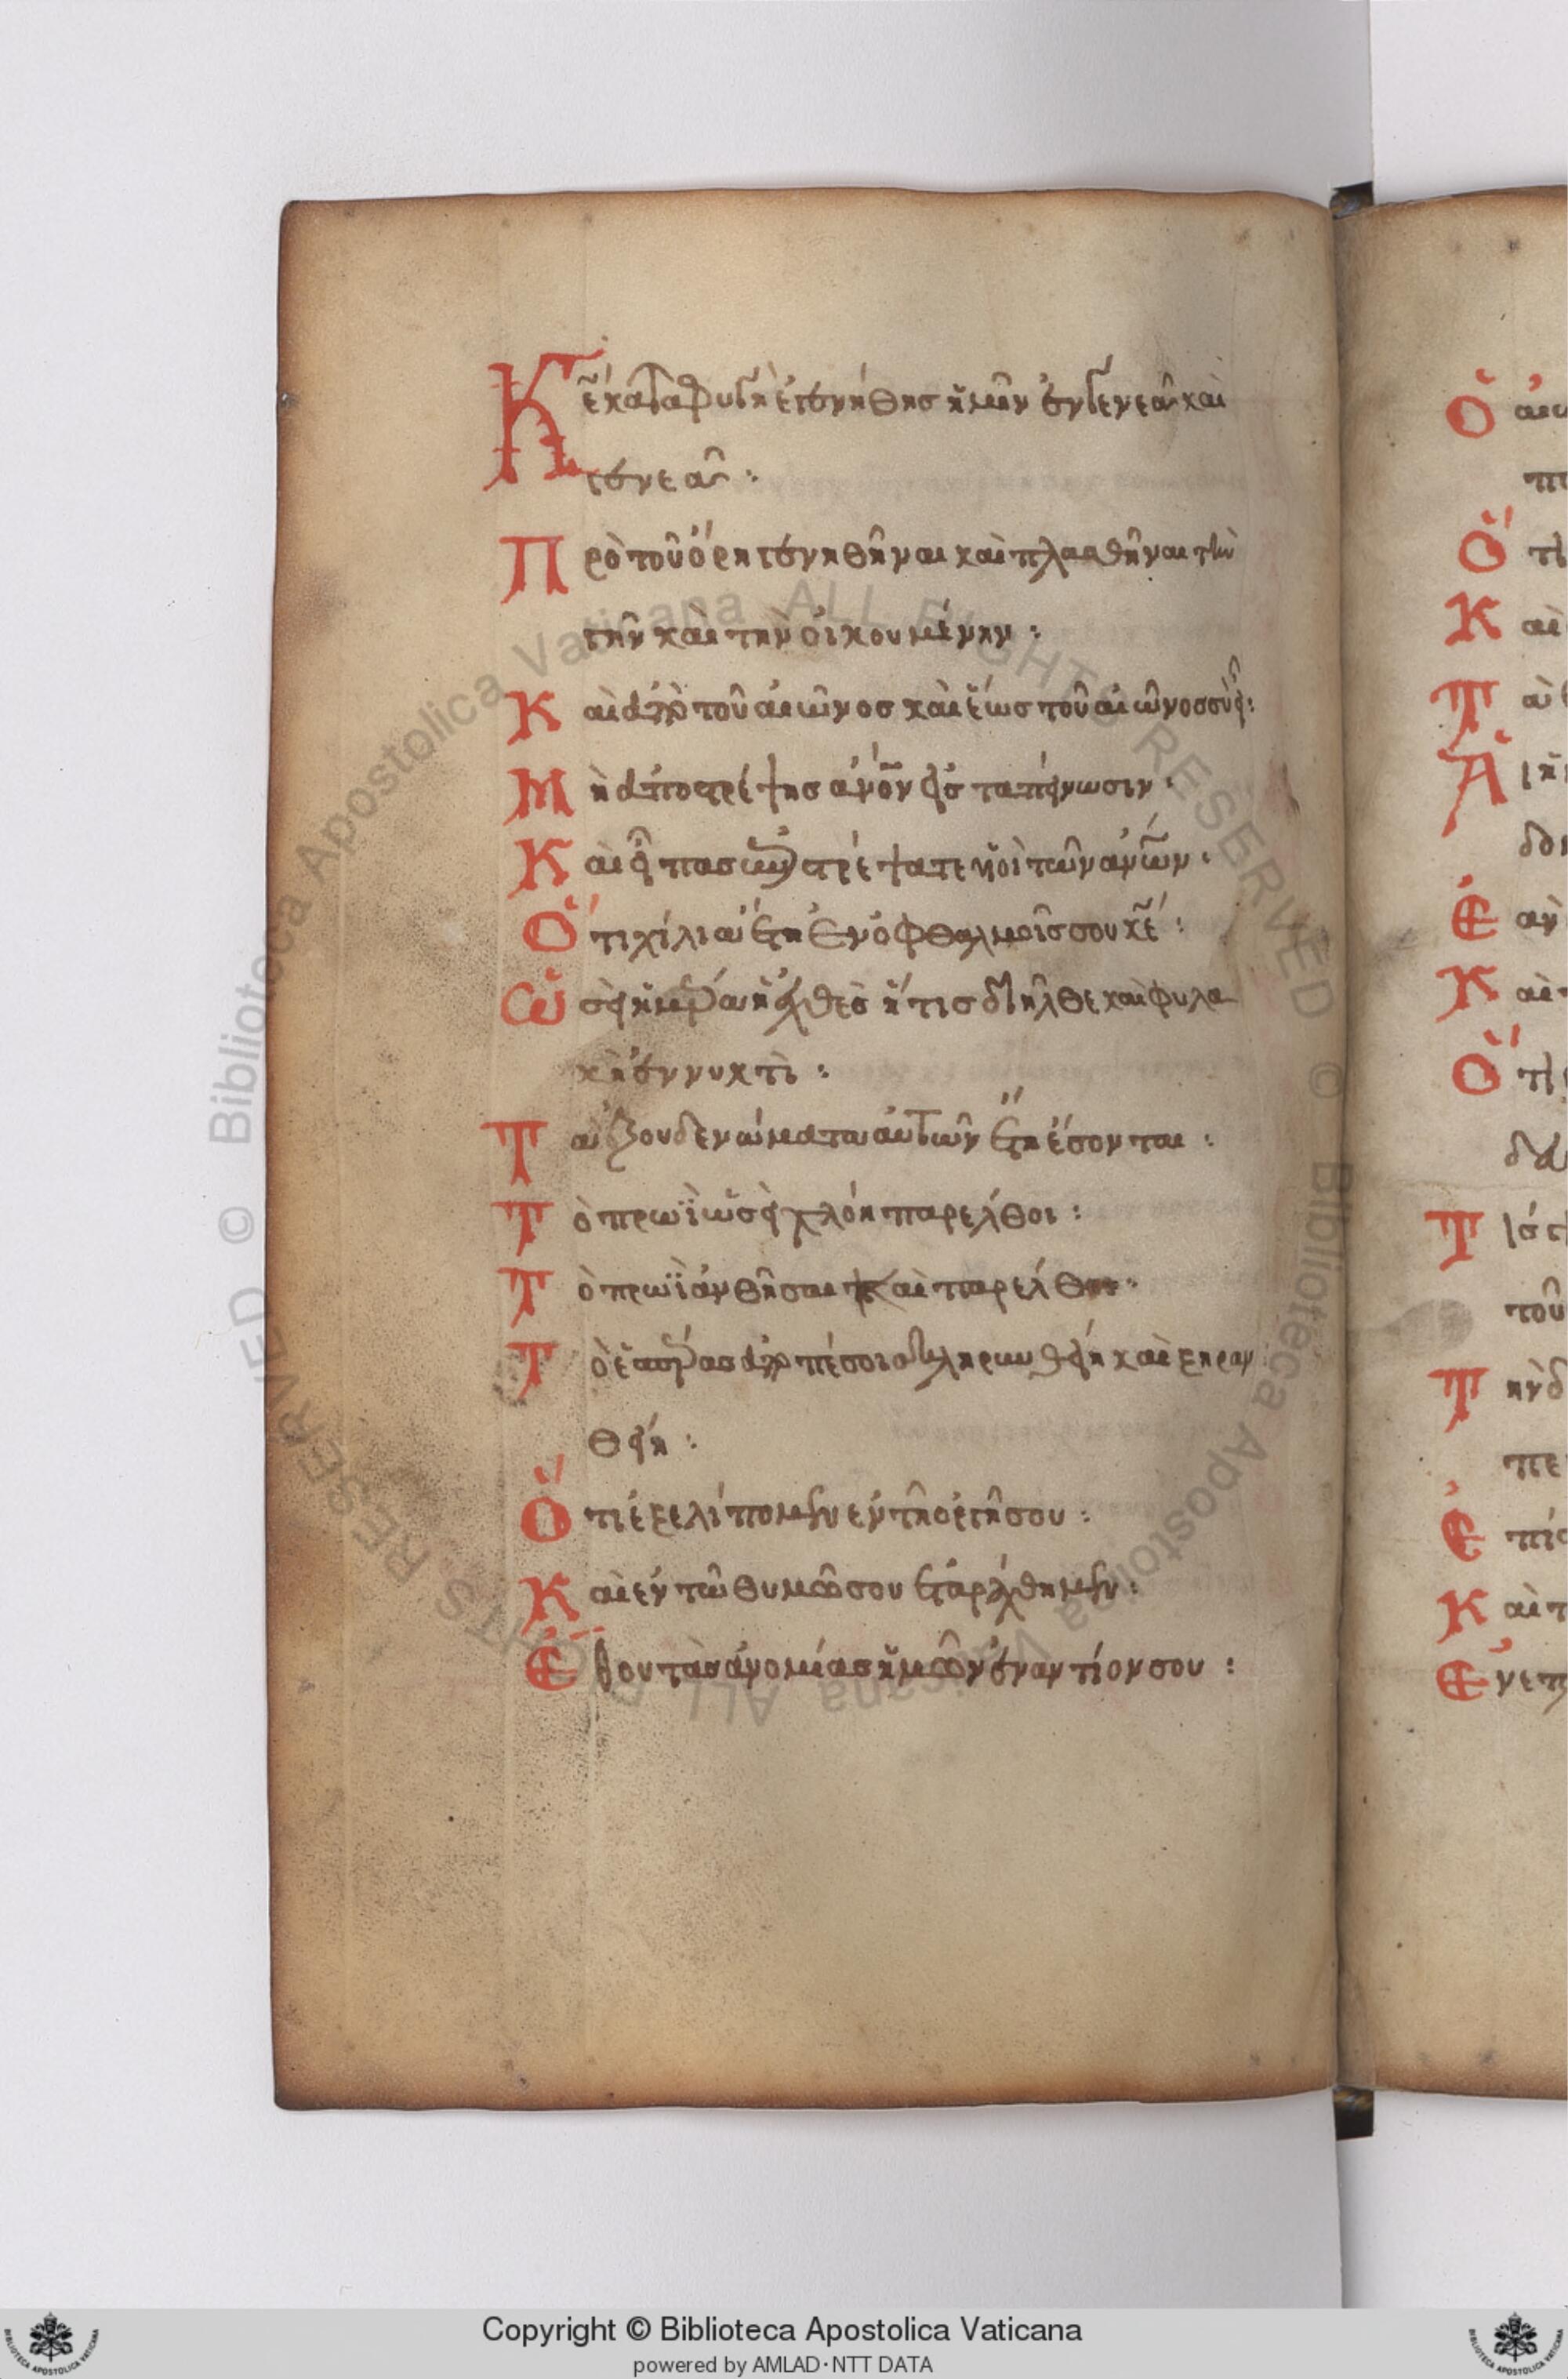 Κε̄ καταφυγὴ ἐγενήθης ἡμῖν ἐν γενεᾶ καὶ
γενεᾶ :
Πρὸ τοῦ ὄρη γενηθῆναι καὶ πλασθῆναι τὴν
γῆν καὶ τὴν οἰκουμένην :
Καὶ ἀπὸ τοῦ αἰῶνος καὶ ἕως τοῦ αἰῶνος σὺ εἶ :
Μὴ ἀποστρέψης ἀνο̄ν εἰς ταπείνωσιν ·
Καὶ εἶπας ἐπιστρέψατε υἱοὶ τῶν ἀνω̄ν ·
Ὅτι χίλια ἔτη ἐν ὀφθαλμοῖς σου κε̄ :
Ὡσεὶ ἡμέρα ἡ ἐχθὲς ἥτις διῆλθε καὶ φυλα
κὴ ἐν νυκτὶ :
Τὰ ἐξουδενώματα αὐτῶν ἔτη ἔσονται :
Τὸ πρωῒ ὡσεὶ χλόη παρέλθοι :
Τὸ πρωῒ ἀνθήσαι καὶ παρέλθοι ·
Τὸ ἑσπέρας ἀποπέσοι σκληρυνθείη καὶ ξηραν
θείη :
Ὅτι ἐξελίπομεν ἐν τῆ ὀργῆ σου :
Καὶ ἐν τῶ θυμῶ σου ἐταράχθημεν :
Ἔθου τὰς ἀνομίας ἡμῶν ἐναντίον σου :
Copyright © Biblioteca Apostolica Vaticana
powered by AMLAD·NTT DATA